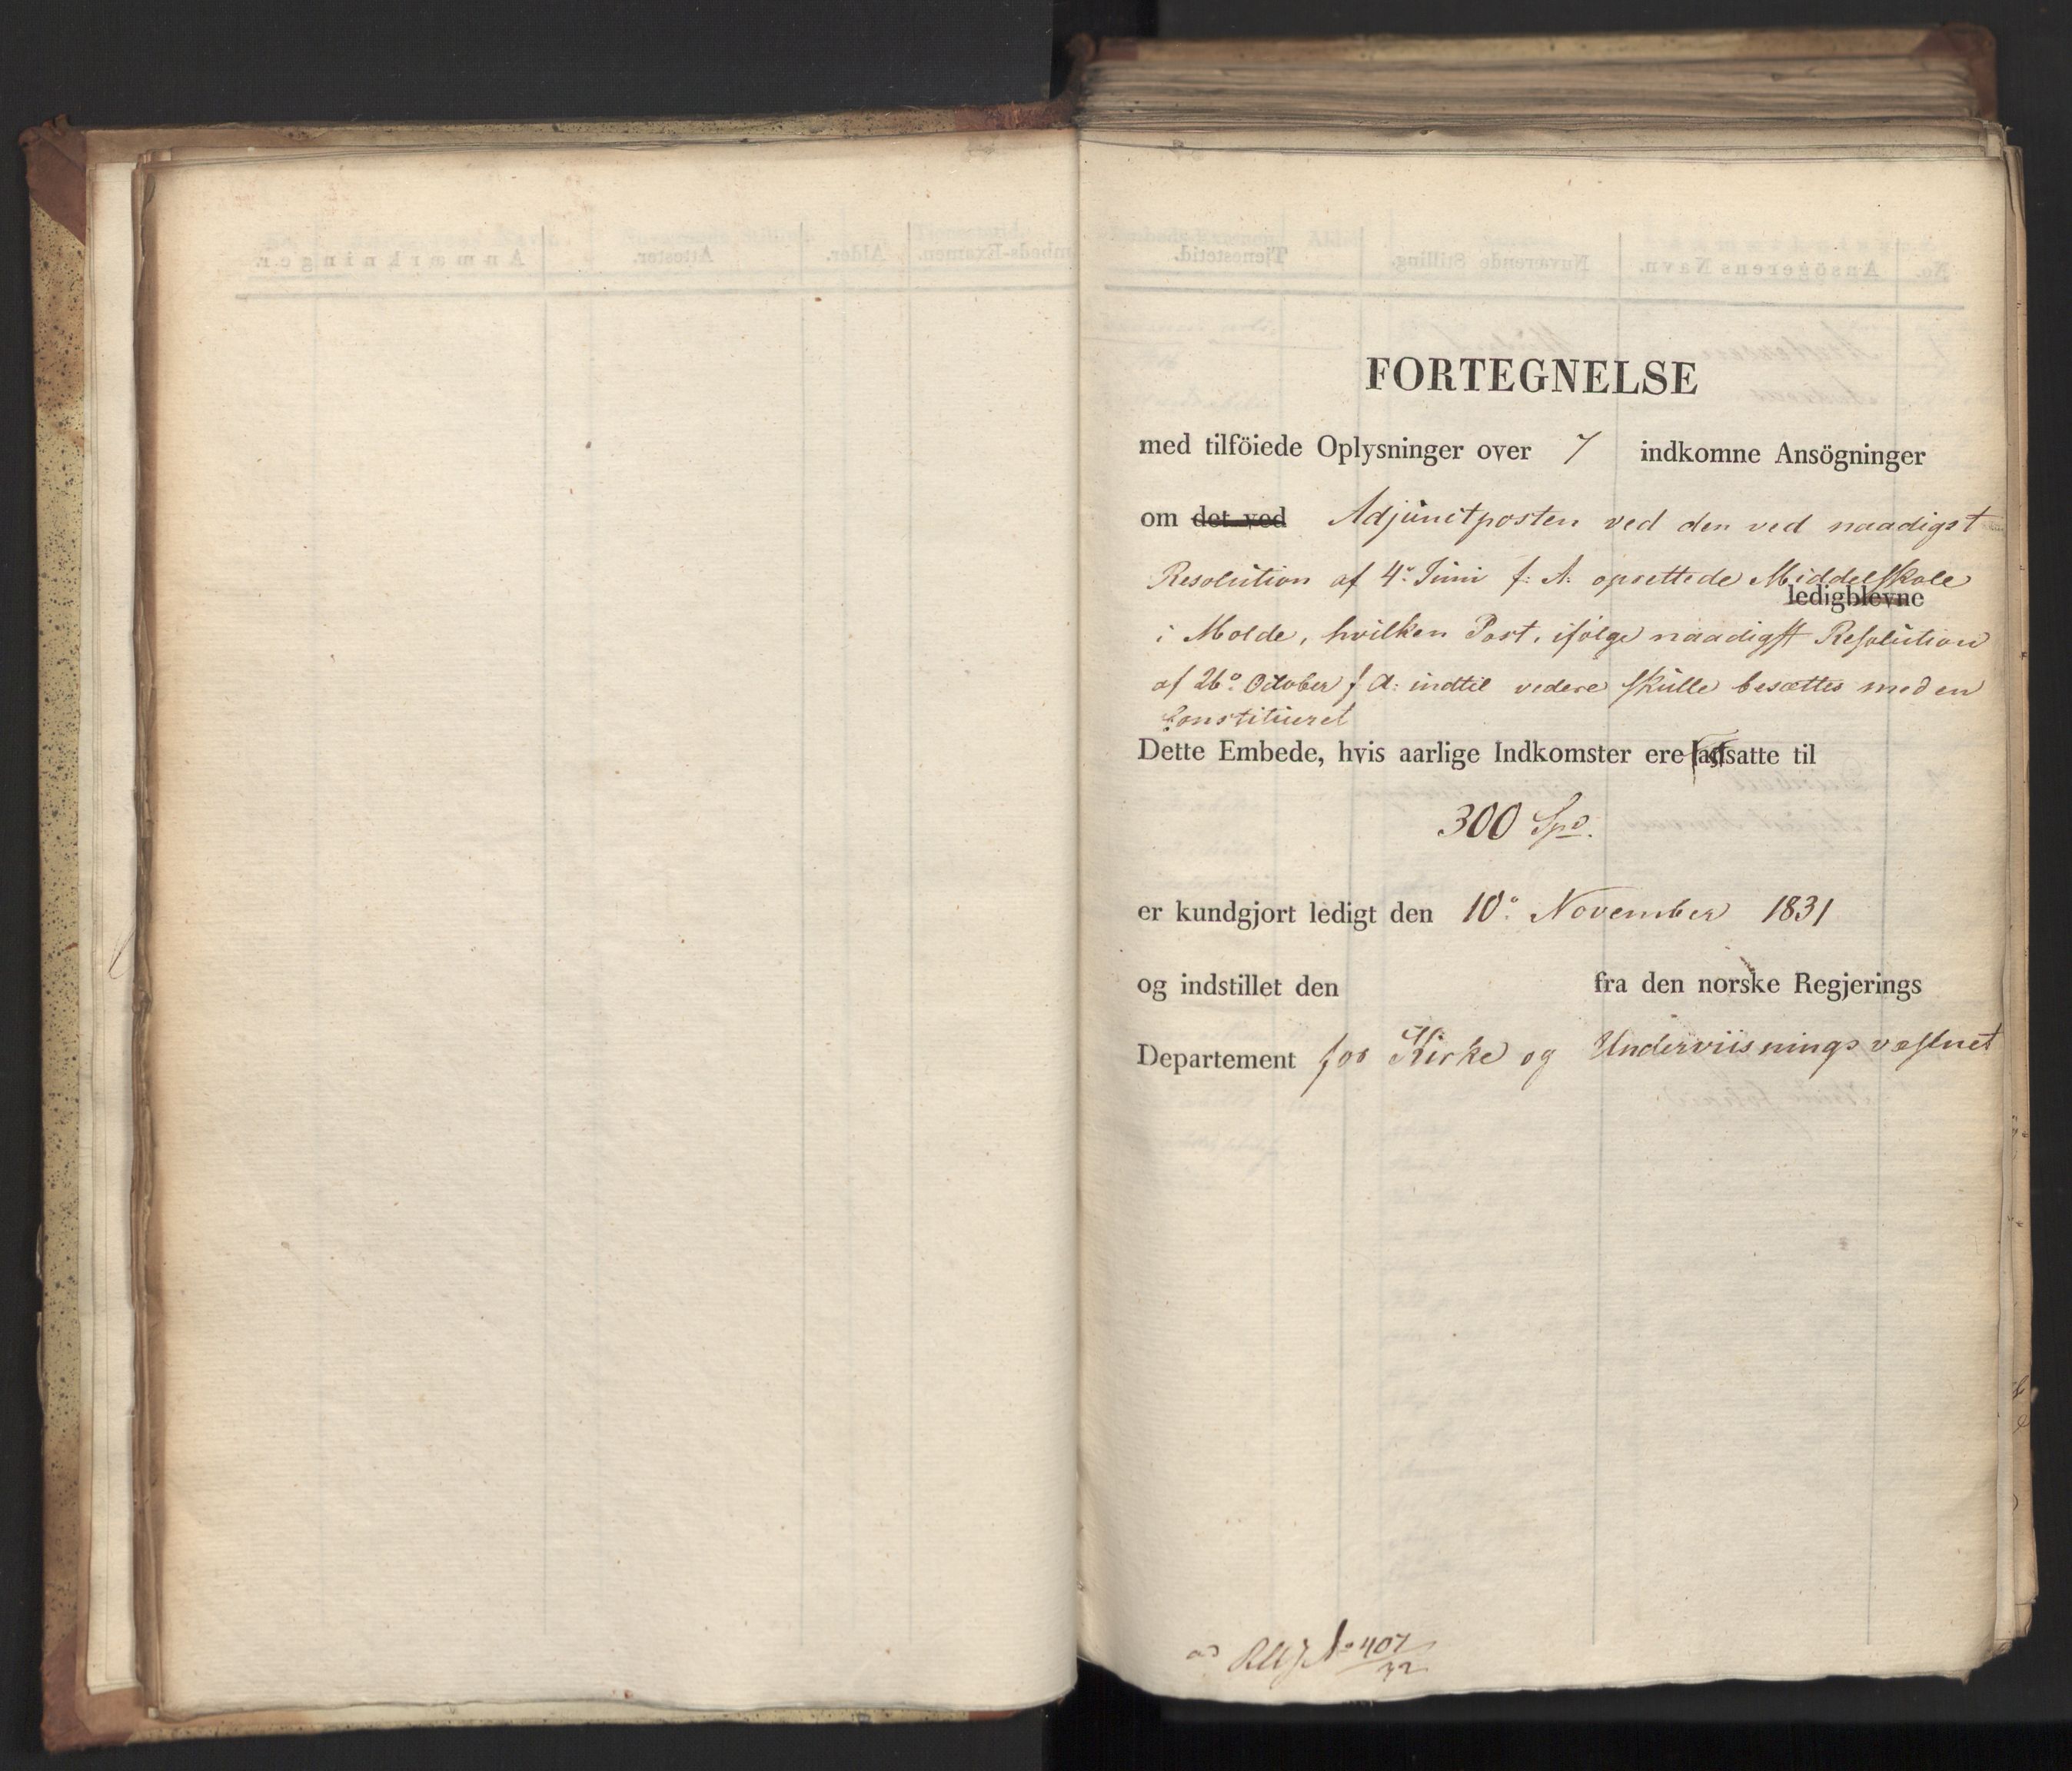 FORTEGNELSE
med tilföiede Oplysninger over 7 indkomne Ansögninger
om det ved Adjunctposten ved den ved naadigst
Resolution af 4de Juni f: A: oprettede Middelskole
ledigblevne
i Molde, hvilken Post, ifølge naadigst Resolution
af 26o October f A: indtil videre skulle besættes med en
Constitueret
Dette Embede, hvis aarlige Indkomster ere fastsatte til
300 Spd.
er kundgjort ledigt den 10o November 1831
og indstillet den fra den norske Regjerings
Departement for Kirke og Underviisningsvæsnet
ad No 407/32
Anmærkninger.
Attester.
Alder.
Embeds-Examen.
Tjenestetid.
Nuværende Stilling.
Ansögerens Navn.
No.